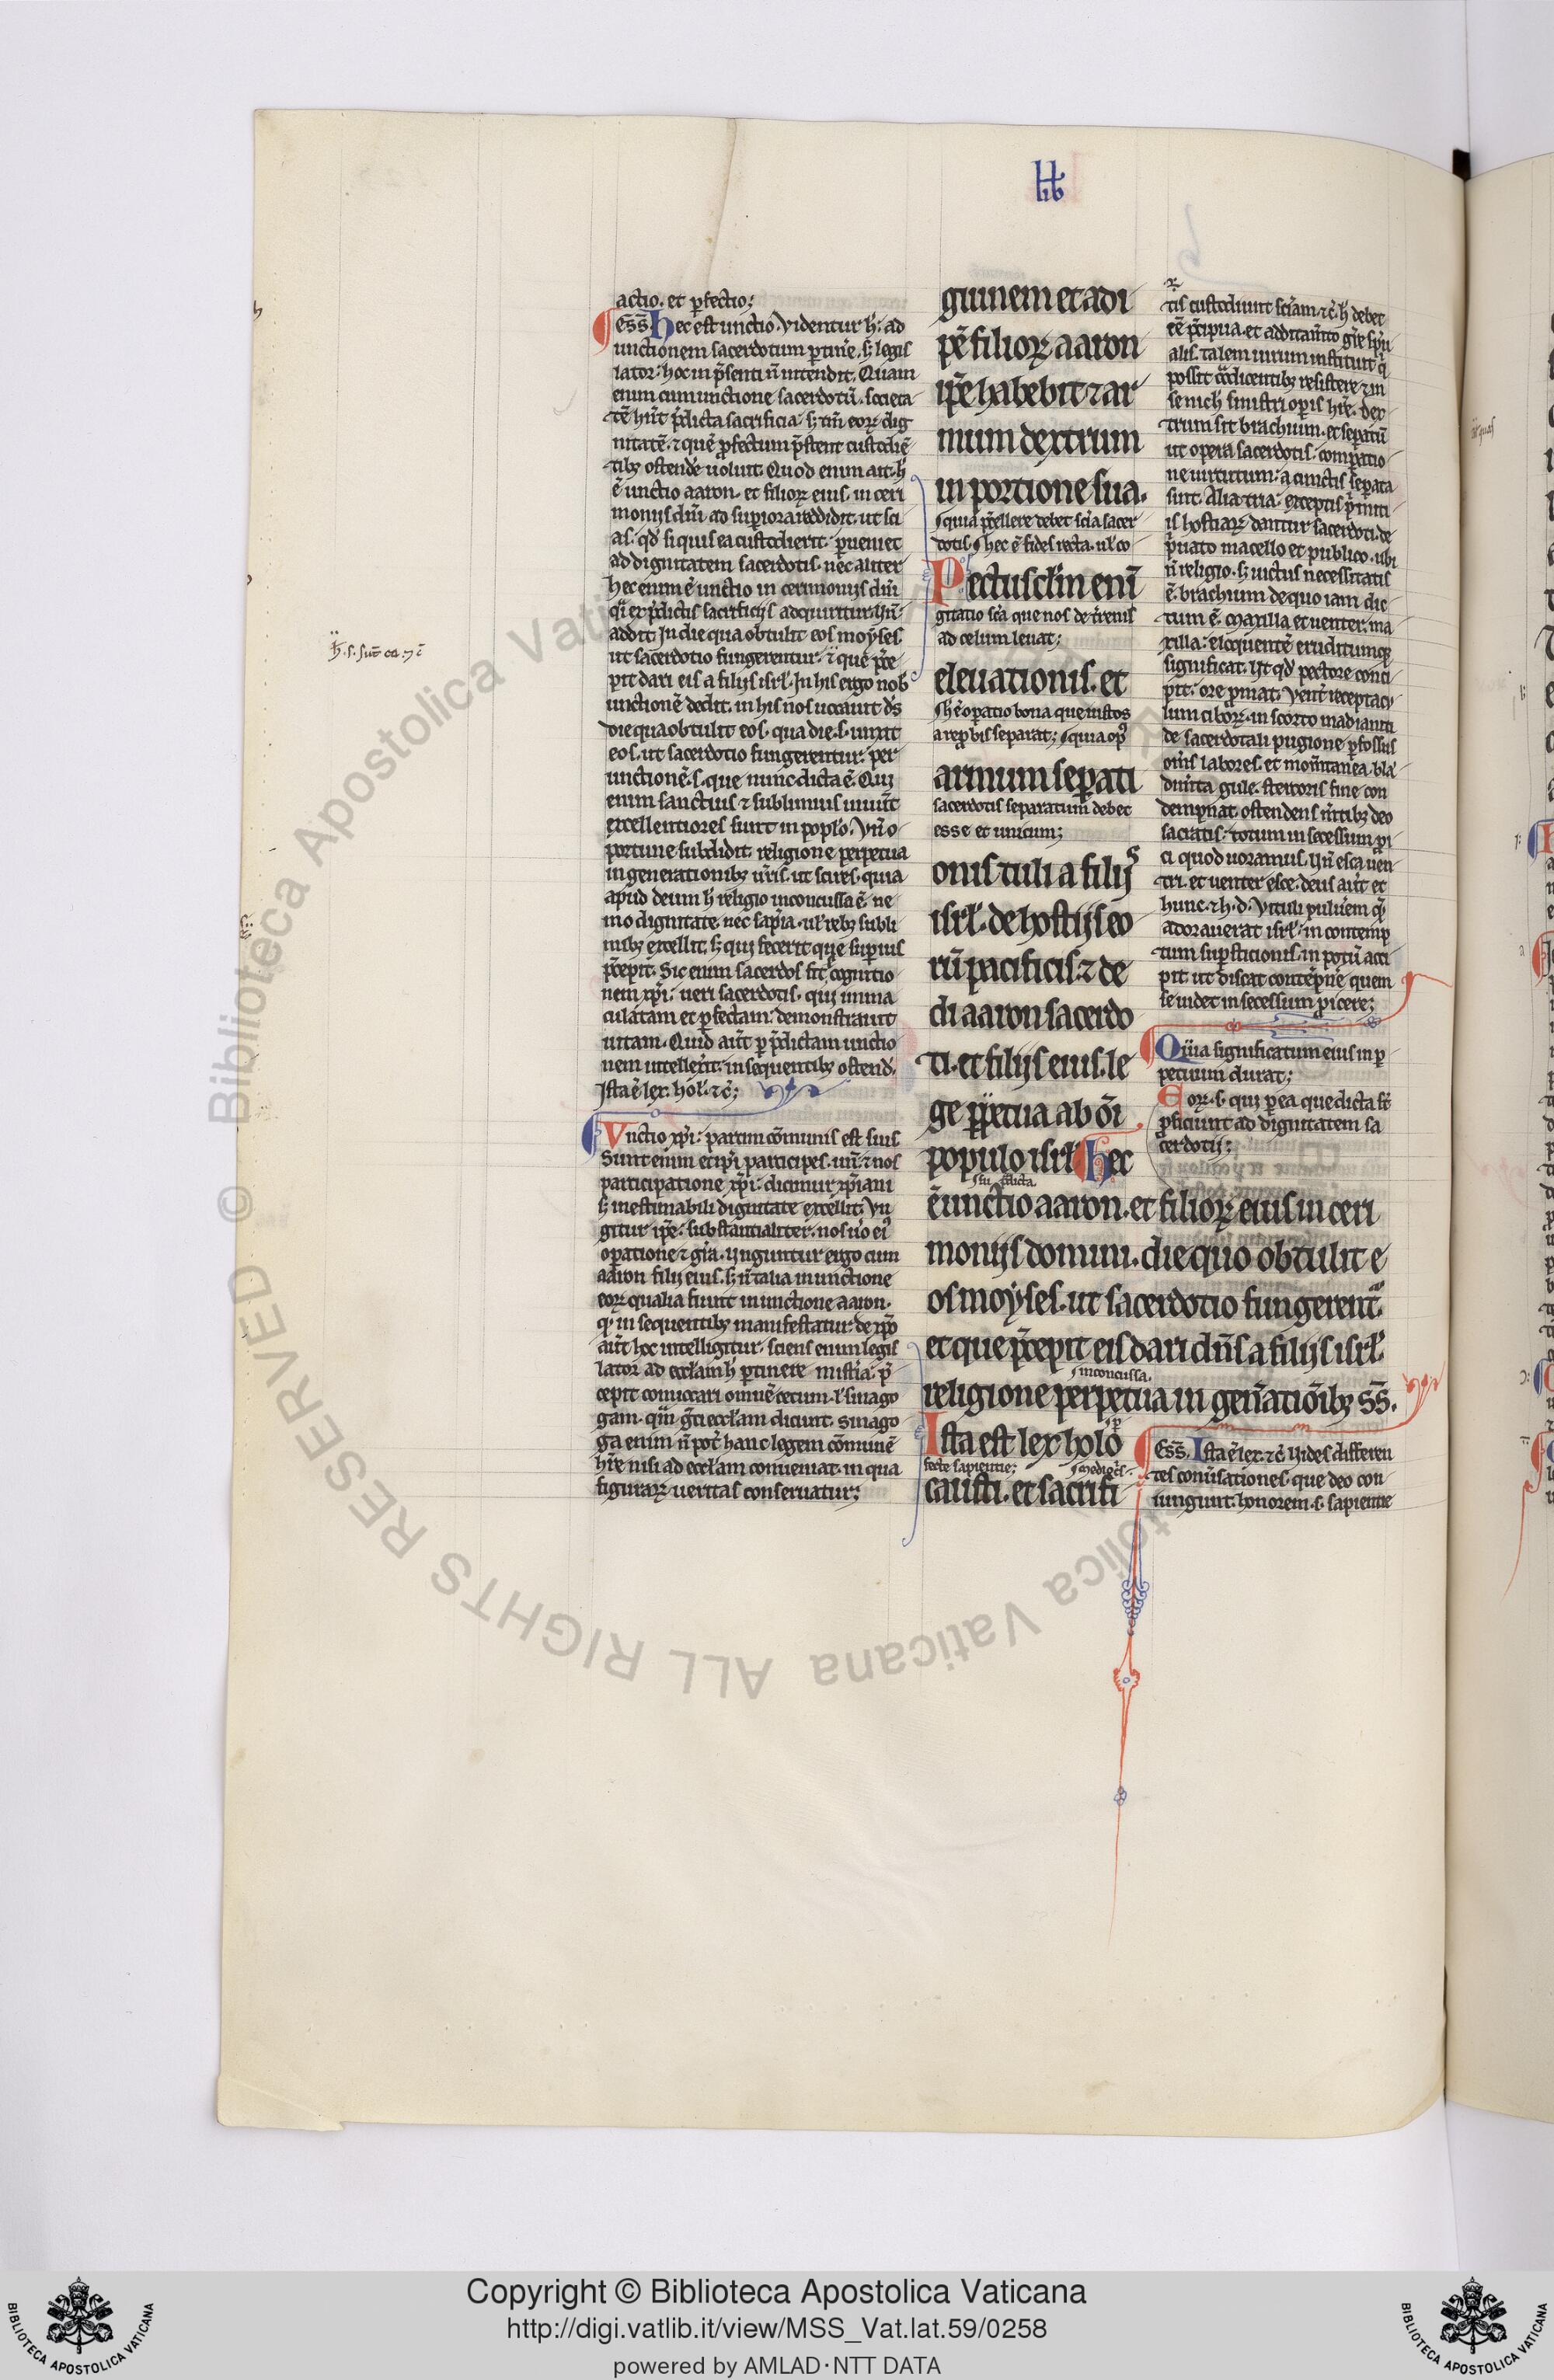 lib
actio. et ꝑfectio;
Es̄s. Hec est unctio. Videntur h̄: ad
unctionem sacerdotum ꝑtine᷑. sꝫ legis
lator: hoc in p̄senti n̄ intendit. Quam
enim cum unctione sacerdotū. societa
tē hn̄t p̄dicta sacrificia: sꝫ tm̄ eoꝝ dig
nitatē. ⁊ quē ꝓfectum p̄stent custodiē
tibꝫ ostende᷑ uoluit. Quod enim ait. h̄
ē unctio aaron. et filioꝝ eius. in ceri
monijs dn̄i ad suꝑiora reddidit. ut sci
as. qd̓ si quis ea custodierit. ꝑueniet
ad dignitatem sacerdotis. nec aliter
hec enim ē unctio in cerimonijs dn̄i
q̄ ex p̄dictis sacrificijs adquiritur. hūc
addit. In die qua obtulit eos moyses
ut sacerdotio fungerentur. ⁊ que p̄ce
pit dari eis a filijs isrl̓. In his ergo nob̓
unctionē dedit. in his nos uocauit d̄s
die qua obtulit eos. qua die. s. unxit
eos. ut sacerdotio fungerentur. per
unctionē. s. que nunc dicta ē. Qui
enim sanctius ⁊ sublimius uiuūt
excellentiores sunt in popl̓o. Vn̄ o
portune subdidit. religione perpetua
in generationibꝫ ur̄is. ut scires. quia
apud deum h̄ religio inconcussa ē. ne
mo dignitate. nec sapīa. ul̓ rebꝫ subli
mibꝫ excellit. sꝫ qui fecerit que suꝑius
p̄cepit. Sic enim sacerdos fit. cognitio
nem xp̄i: ueri sacerdotis. qui imma
culatam et ꝑfectam: demonstrauit
uitam. Quid aūt ꝑ p̄dictam unctio
nem intellexit. in sequentibꝫ ostend̓.
Ista ē lex. hol̓. ⁊c̄;
Vnctio xp̄i: partim cōmunis est suis
Sunt enim et ip̄i participes. un̄ ⁊ nos
participatione xp̄i: dicimur xp̄iani
sꝫ inestimabili dignitate excellit. Vn
gitur ip̄e: substantialiter. nos u̓o ei᷒
oꝑatione ⁊ gr̄a. Vnguntur ergo cum
aaron filij eius. sꝫ n̄ talia in unctione
eoꝝ qualia fiunt in unctione aaron.
q. in sequentibꝫ manifestatur. de xp̄o
aūt hoc intelligitur. sciens enim legis
lator ad eccl̓am h̄ ꝑtinere mist̓ia. p̄
cepit conuocari omnē cetum. l̓ sinago
gam. qm̄ gͥti eccl̓am dicunt. sinago
ga enim n̄ pot̓ hanc legem cōmunē
hr̄e nisi ad eccl̓am conueniat. in qua
figuraꝝ ueritas conseruatur;
guinem et adi
pē filioꝝ aaron
ip̄e habebit ⁊ ar
mum dextrum
in portione sua.
quia p̄cellere debet sciā sacer
dotis. hec ē fides recta. ul̓ co
Pectusculn̄ enī
gitatio scā que nos de t̓renis
ad celum leuat;
eleuationis. et
h̄ ē oꝑatio bona que iustos
a reꝓbis separat; quia op᷒
armum seꝑati
sacerdotis separatum debet
esse et unicum;
onis tuli a filijs
isrl̓. de hostijs eo
rū pacificis. ⁊ de
di aaron sacerdo
ti. et filijs eius. le
ge ꝑpetua ab ōi
populo isrl̓. Hec
ē unctio aaron. et filioꝝ eius in ceri
monijs domini. die quo obtulit e
os moyses. ut sacerdotio fungerent᷑.
et que p̄cepit eis dari dn̄s a filijs isrl̓.
inconcussa.
religione perpetua in gen̄ationibꝫ s̄s.
Ista est lex holo
fecte sapientie;
causti. et sacrifi
tis custodiunt sciām ⁊c̄. h̄ debet
eē p̄cipua. et additam̄to gr̄e sp̄u
alis. talem uirum instituit. q̄
possit cōdicentibꝫ resistere. ⁊ in
se nich̓ sinistri oꝑis hr̄e. dex
trum sit brachium. et seꝑatū
ut opera sacerdotis. comꝑatio
ne uirtutum: a cunctis seꝑata
sint. Alia tria: exceptis p̄miti
is hostiaꝝ dantur sacerdoti. de
p̄uato macello et publico. ubi
n̄ religio. sꝫ uictus necessitatis
ē. brachium de quo iam dic
tum ē. Maxilla et uenter. ma
xilla: eloquentē eruditumqꝫ
significat. Vt qd̓ pectore conci
pit: ore ꝓmat. Vent̓ receptacu
lum ciboꝝ. in scorto madianiti
de sacerdotali pugione ꝑfossus
om̄s labores. et mom̄tanea. bla
dim̄ta gule. stercoris fine con
dempnat. ostendens m̄tibꝫ deo
sacratis: totum in secessum ꝓi
ci quod uoramus. Vn̄ esca uen
tri. et uenter esce. deus aūt et
hunc. ⁊ h. d. Vituli puluerem q̄
adorauerat isrl̓: in contemp
tum suꝑsticionis. in potū acci
pit. ut discat contēpnē quem
se uidet in secessum ꝓicere;
Quia significatum eius in ꝑ
petuum durat;
Eoꝝ. s. qui ꝑ ea que dicta st̄
ꝓficiunt ad dignitatem sa
cerdotij;
Es̄s. Ista ē lex. ⁊c̄. Vides differen
tes conu̓sationes. que deo con
iungunt. honorem. s. sapientie
Copyright © Biblioteca Apostolica Vaticana
http://digi.vatlib.it/view/MSS_Vat.lat.59/0258
powered by AMLAD·NTT DATA
BIBLIOTECA APOSTOLICA VATICANA
BIBLIOTECA APOSTOLICA VATICANA
© Biblioteca Apostolica Vaticana ALL RIGHTS RESERVED